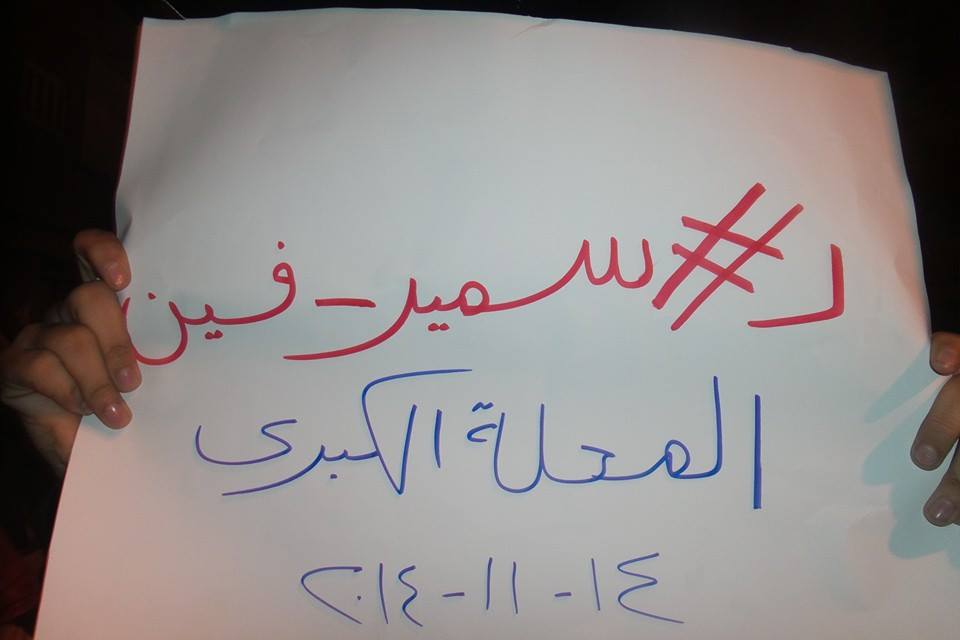 د#سمير_فين
المحلة الكبرى
١٤-١١-٢٠١٤